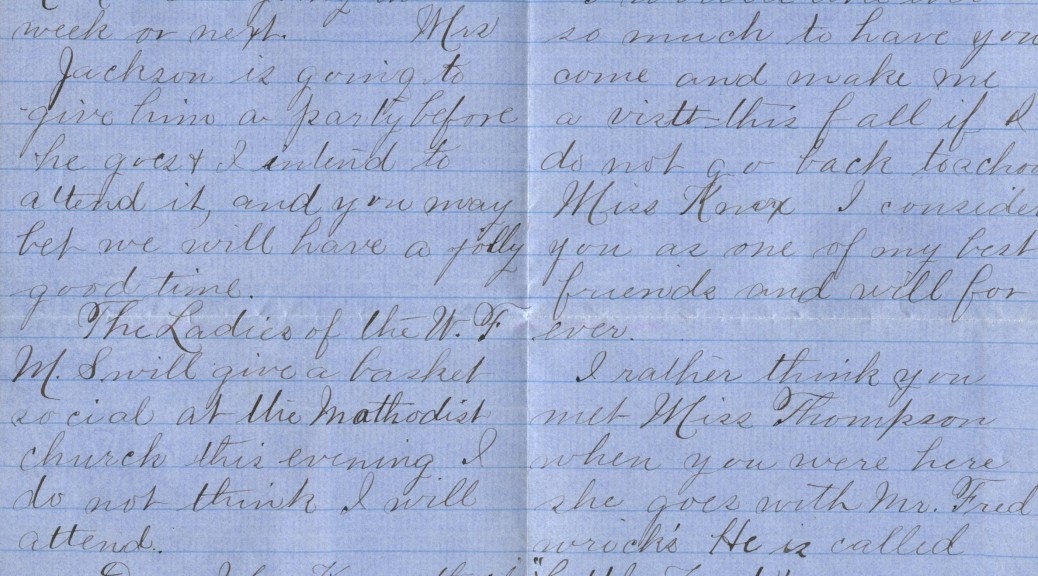 week or next. Mrs
Jackson is going to
give him a party before
he goes & I intend to
attend it, and you may
bet we will have a jolly
good time.
The Ladies of the W. F
M. S will give a basket
social at the Mathodist
church this evening I
do not think I will
attend.
so much to have you
come and make me
a visit this fall if I
do not go back to schoo
Miss Knox I consider
you as one of my best
friends and will for
ever.
I rather think you
met Miss Thompson
when you were here
she goes with Mr. Fred
He is called